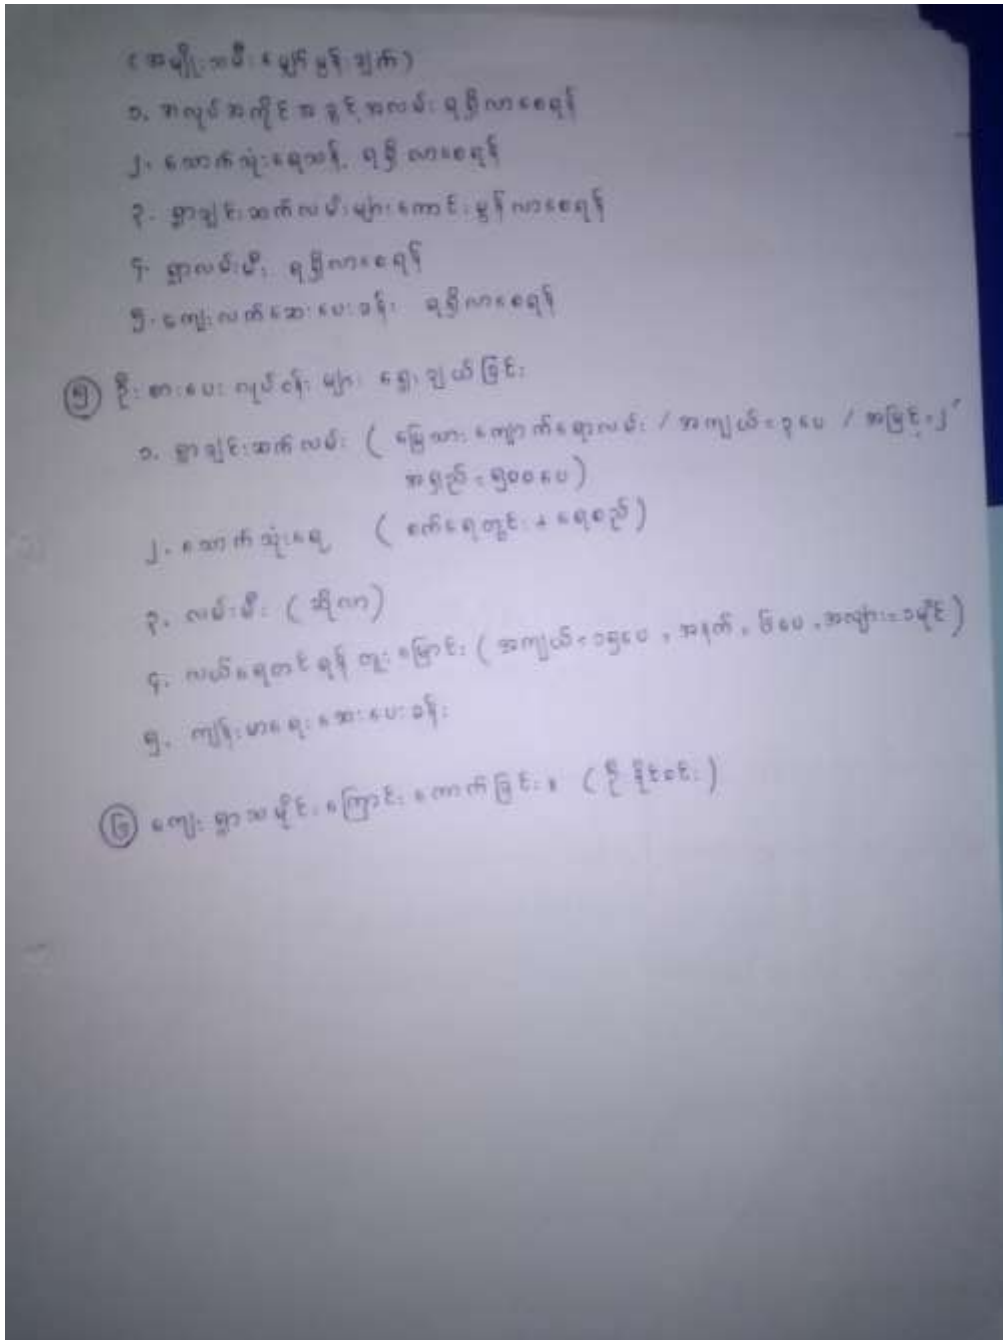 (အမျိုးသမီးမျှော်မှန်းချက်)
၁. အလုပ်အကိုင်အခွင့်အလမ်းရရှိလာစေရန်
၂. သောက်သုံးရေသန့် ရရှိလာစေရန်
၃. ရွာချင်းဆက်လမ်းများကောင်းမွန်လာစေရန်
၄. ရွာလမ်းမီး ရရှိလာစေရန်
၅. ကျေးလက်ဆေးပေးခန်း ရရှိလာစေရန်
၅ ဦးစားပေးလုပ်ငန်းများ ရွေးချယ်ခြင်း
၁. ရွာချင်းဆက်လမ်း ( မြေသားကျောက်ချောလမ်း / အကျယ် = ၃ပေ / အမြင့် = ၂'
အရှည် = ၅၀၀ပေ )
၂. သောက်သုံးရေ ( စက်ရေတွင်း + ရေစည် )
၃. လမ်းမီး ( ဆိုလာ )
၄. လယ်ရေတင်ရန် တူးမြောင်း ( အကျယ် = ၁၅ပေ ، အနက် = ၆ပေ ، အလျား = ၁မိုင် )
၅. ကျန်းမာရေးဆေးပေးခန်း
၆ ကျေးရွာသမိုင်းကြောင်းကောက်ခြင်း။ ( ဦးနိုင်ဝင်း )